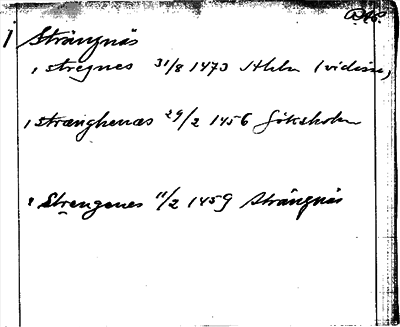 1 Strängnäs
, stregnes 31/8 1473 Sthlm (vidisse)
, stranghenæs 29/2 1456 Göksholm
, Strengenes 11/2 1459 Strängnäs